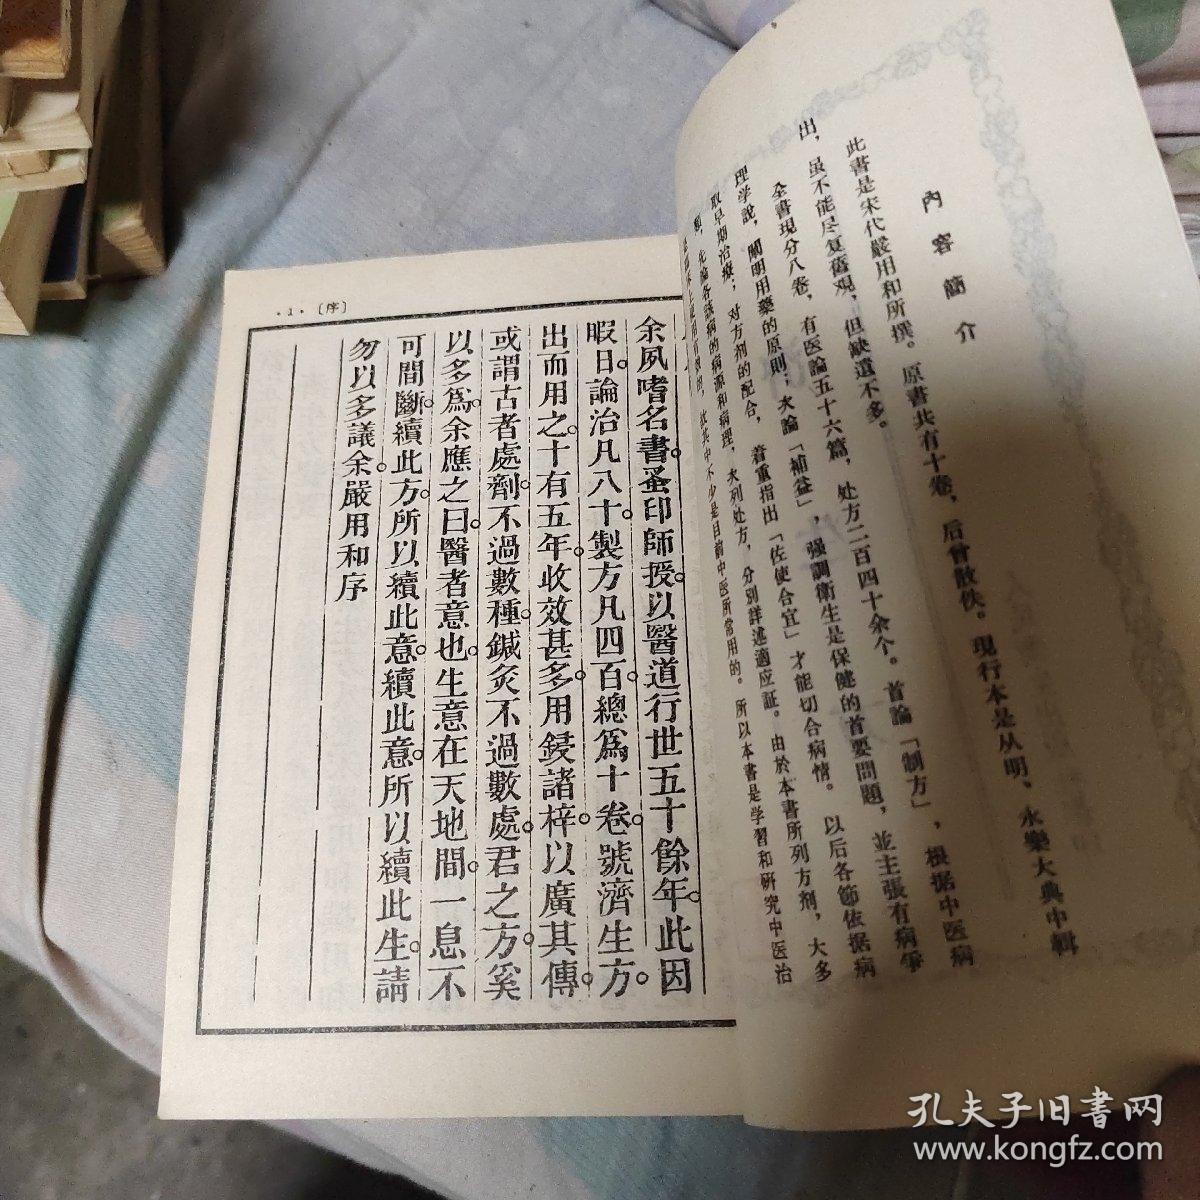 內容簡介
此書是宋代嚴用和所撰。原書共有十卷，后曾散佚。現行本是从明、永樂大典中輯
出，虽不能尽复舊观，但缺遺不多。
全書現分八卷，有医論五十六篇，处方二百四十余个。首論「制方」，根据中医病
理学說，闡明用藥的原則；次論「補益」，强調衛生是保健的首要問題，並主張有病爭
取早期治療；对方剂的配合，着重指出「佐使合宜」才能切合病情。以后各節依据病
類，先論各該病的病源和病理，次列处方，分別詳述適应証。由於本書所列方剂，大多
其中不少是目前中医所常用的。所以本書是学習和研究中医治
·1·〔序〕
余夙嗜名書。蚤印師授。以醫道行世五十餘年。此因
暇日。論治凡八十。製方凡四百。總爲十卷。號濟生方。
出而用之。十有五年。收效甚多。用鋟諸梓。以廣其傳。
或謂古者處劑。不過數種。鍼灸不過數處。君之方。奚
以多爲。余應之曰。醫者意也。生意在天地間。一息不
可間斷。續此方。所以續此意。續此意。所以續此生。請
勿以多議余。嚴用和序
孔夫子旧書网
www.kongfz.com